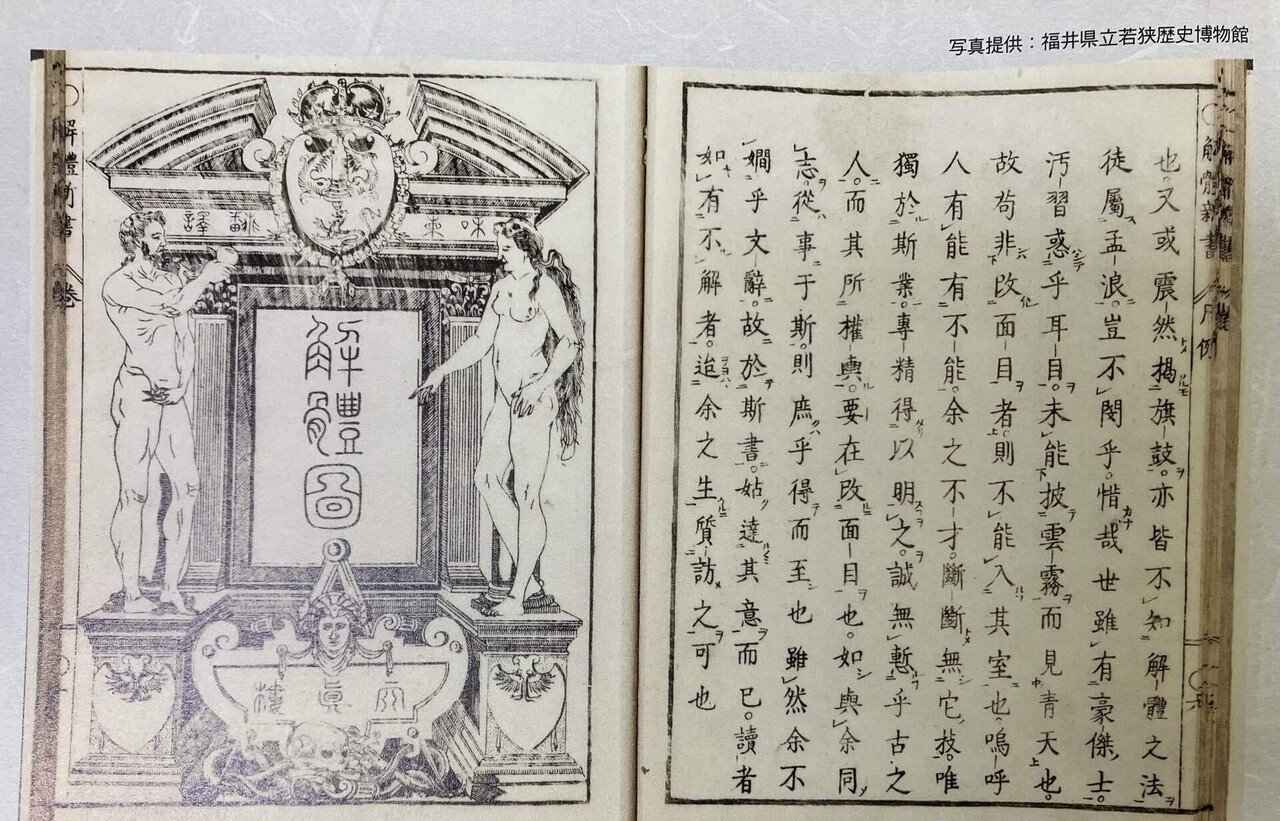 写真提供：福井県立若狭歴史博物館
解體新書
凡例
也。又或震然揭旗鼓。亦皆不知解體之法
徒屬孟浪。豈不閔乎。惜哉世雖有豪傑士。
汚習惑乎耳目。未能披雲霧而見青天也。
故苟非改面目者。則不能入其室也。嗚呼
人有能有不能。余之不才。斷斷無它技。唯
獨於斯業。專精得以明之。誠無慙乎古之
人。而其所權輿。要在改面目也。如與余同
志。從事于斯。則庶乎得而至也。雖然余不
嫺乎文辭。故於斯書。姑達其意而已。讀者
如有不解者。迨余之生質訪之可也
解體圖
天眞樓
解體新書
卷